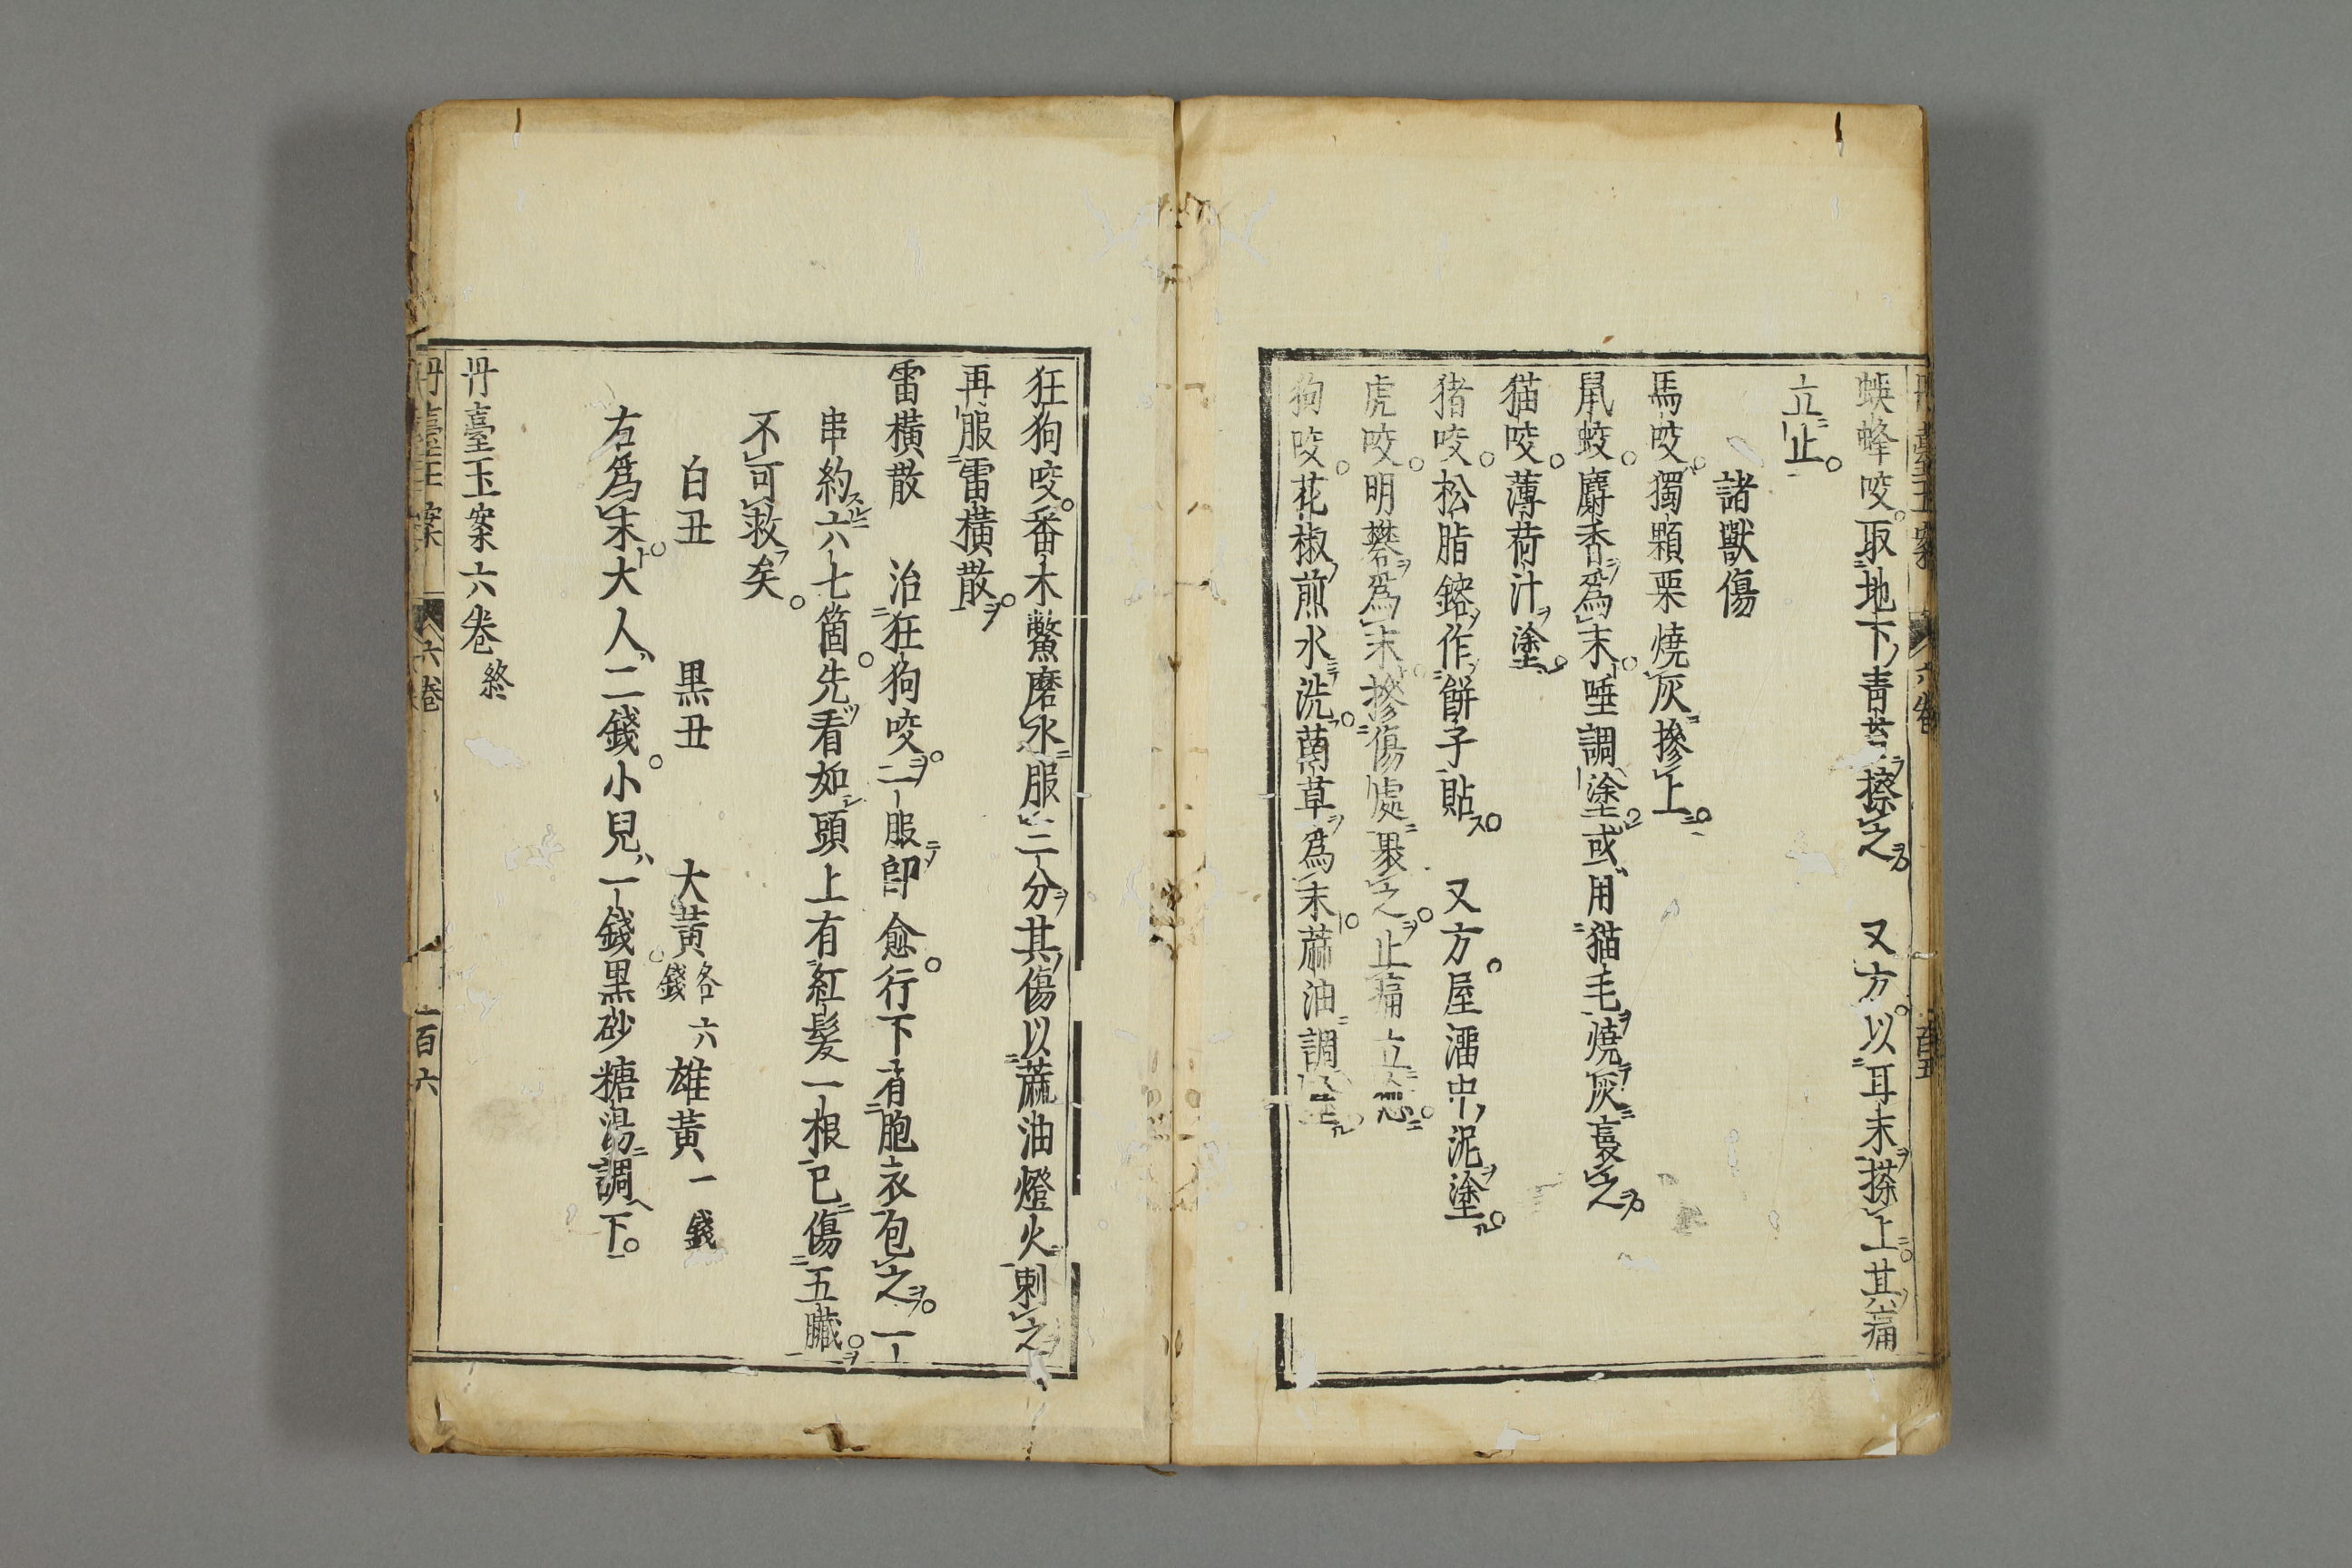 丹臺玉案 六卷 百五
蛺蜂咬。取地下青苔擦之。 又方。以耳末搽上。其痛
立止。
諸獸傷
馬咬。獨顆栗燒灰摻上。
鼠蛟。麝香爲末。唾調塗。或用猫毛燒灰
猫咬。薄荷汁塗。
猪咬。松脂鎔作餅子貼。 又方。屋霤中泥塗。
虎咬。明礬爲末。摻傷處裹之。止痛立愈。
狗咬。花椒煎水洗。莴草爲末。蔴油調塗。
狂狗咬。番木鱉磨水服二分。其傷以蔴油燈火刺之
再服雷橫散。
雷橫散 治狂狗咬。二服即愈。行下有胞衣包之。一
串約六七箇。先看如頭上有紅髮一根。已傷五臟。
不可救矣。
白丑 黒丑 大黃各六錢 雄黃一錢
右爲末。大人二錢。小兒一錢。黒砂糖湯調下。
丹臺玉案六卷終
丹臺玉案 六卷 一百六